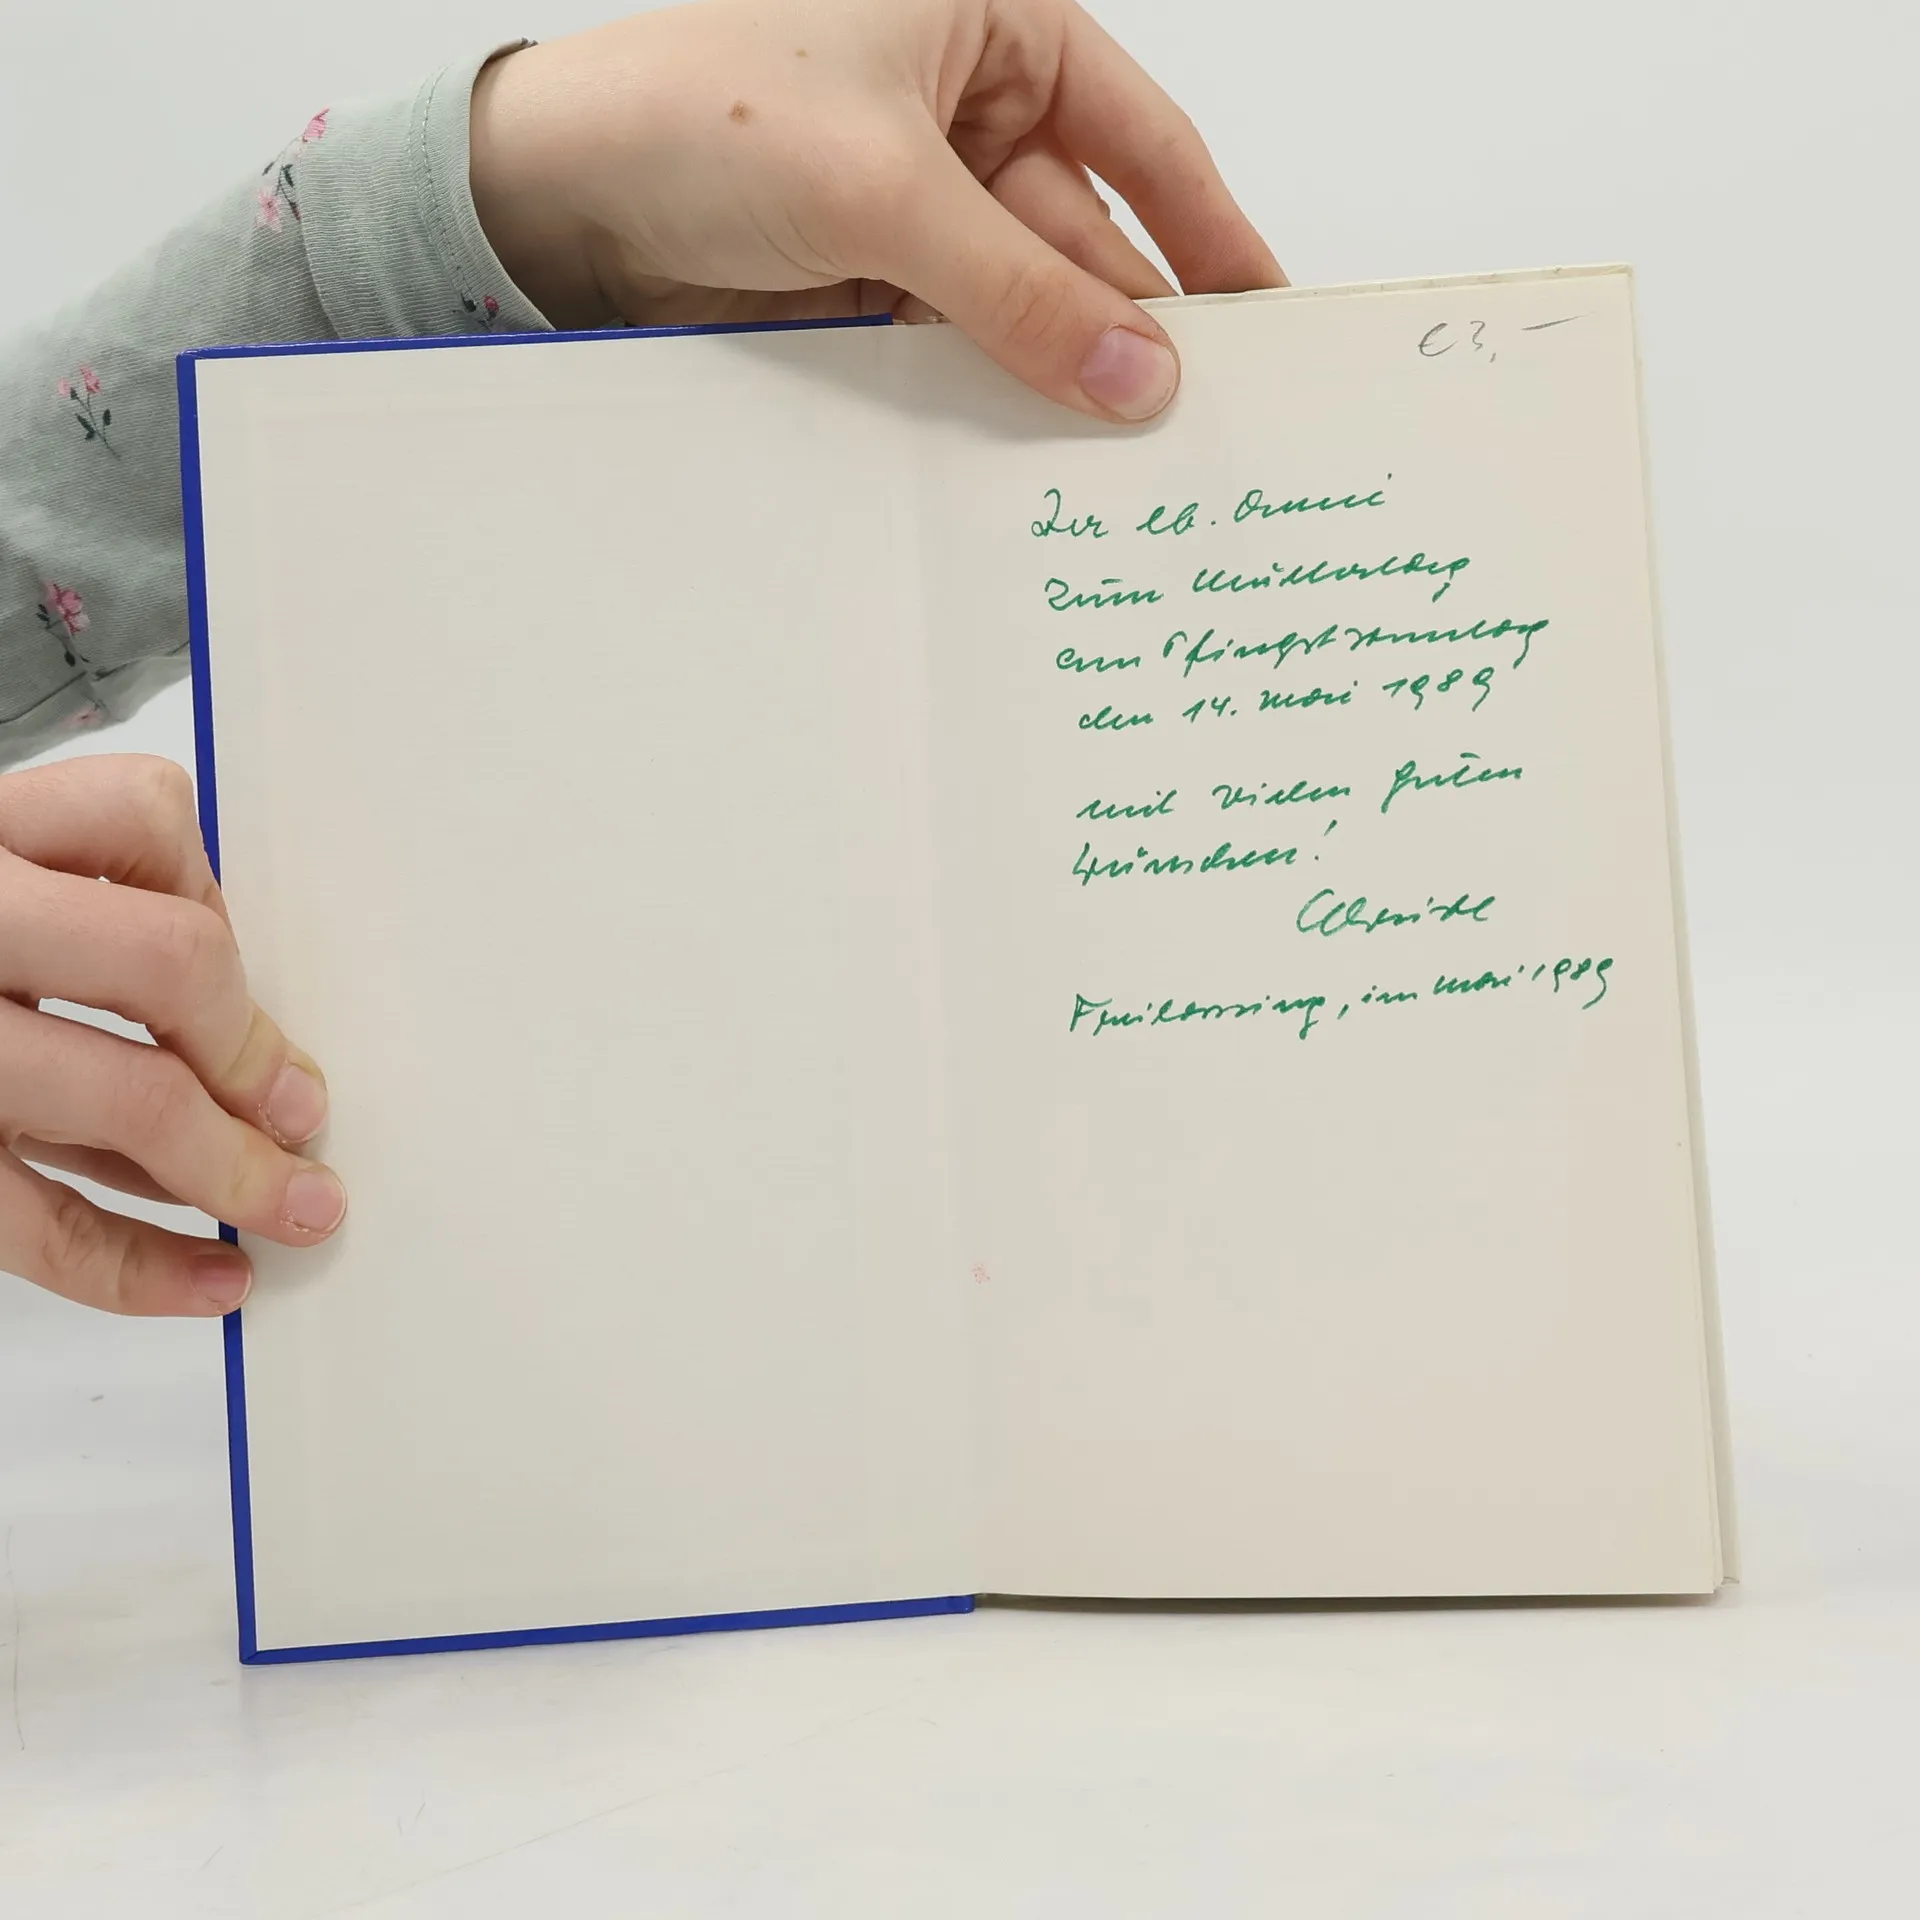 € 3,–
Der lb. Ommi
zum Muttertag
am Pfingstsonntag
den 14. Mai 1989
mit vielen guten
Wünschen!
Freilassing, im Mai 1989